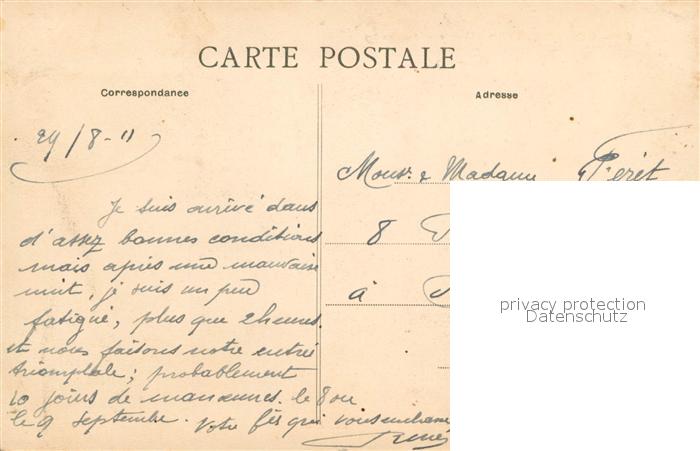 CARTE POSTALE
Correspondance
Adresse
29/8-11
Mons. & Madame Péret
8
à
Je suis arrivé dans
d'assez bonnes conditions
mais après une mauvaise
nuit, je suis un peu
fatigué, plus que 2 heures
et nous faisons notre entrée
triomphale; probablement
10 jours de manœuvres. le 8 ou
le 9 septembre. Votre fils qui vous
René
privacy protection
Datenschutz